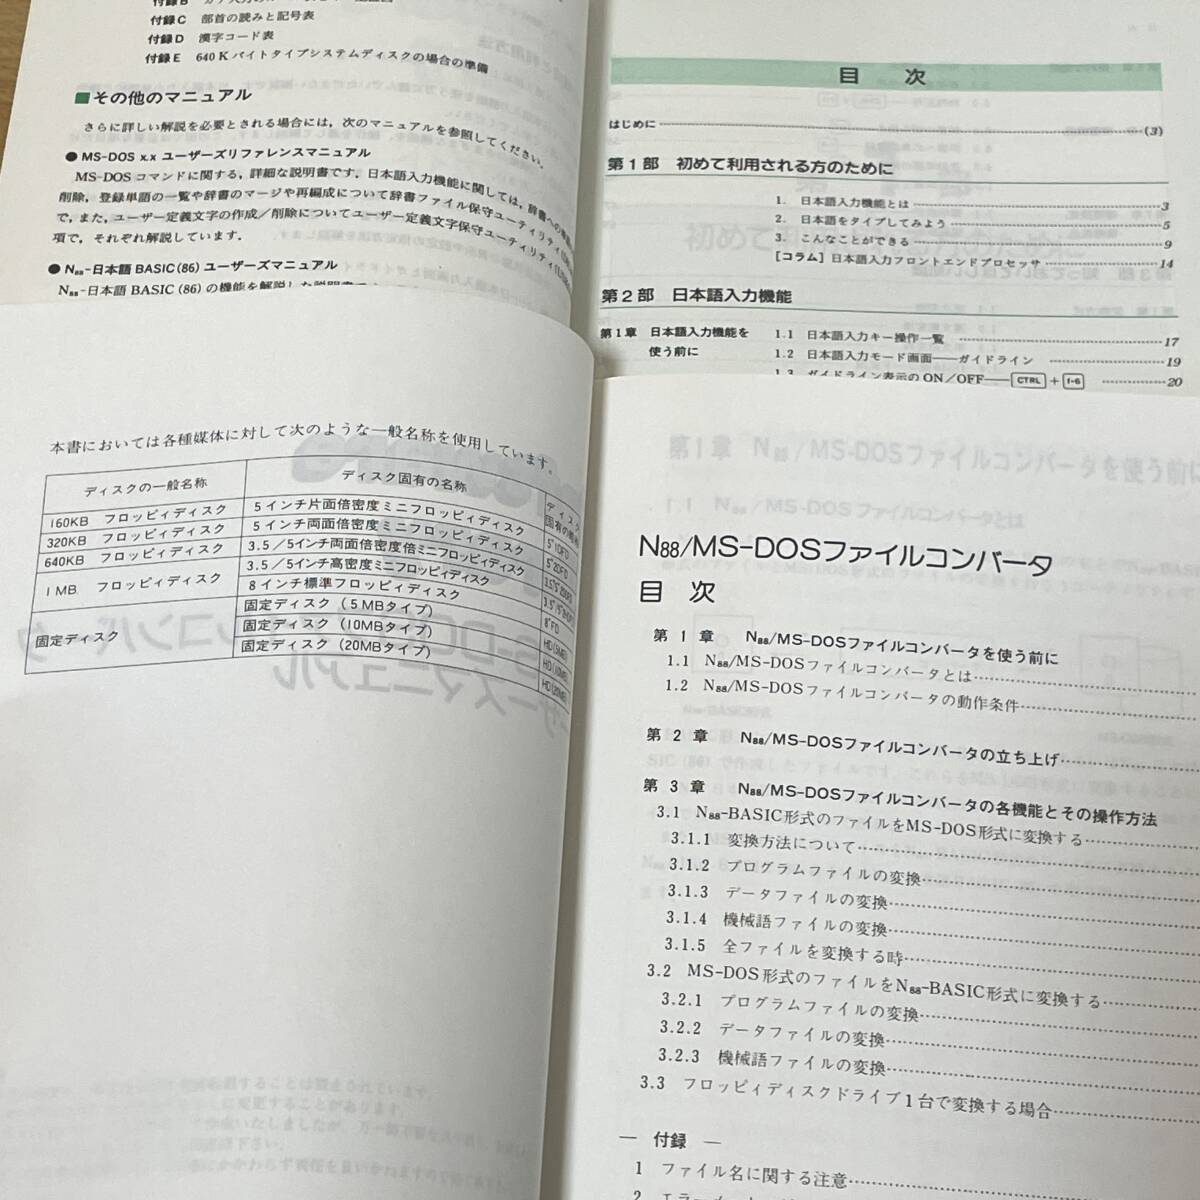 付録C 部首の読みと記号表
付録D 漢字コード表
付録E 640Kバイトタイプシステムディスクの場合の準備
■その他のマニュアル
さらに詳しい解説を必要とされる場合には，次のマニュアルを参照してください．
● MS-DOS x.x ユーザーズリファレンスマニュアル
MS-DOSコマンドに関する，詳細な説明書です．日本語入力機能に関しては，辞書への
削除，登録単語の一覧や辞書のマージや再編成について辞書ファイル保守ユーティリティ
で，また，ユーザー定義文字の作成／削除についてユーザー定義文字保守ユーティリティ
項で，それぞれ解説しています．
● N88-日本語BASIC(86)ユーザーズマニュアル
N88-日本語BASIC(86)の機能を解説した説明書
目 次
はじめに (3)
第1部 初めて利用される方のために
1. 日本語入力機能とは 3
2. 日本語をタイプしてみよう 5
3. こんなことができる 9
[コラム]日本語入力フロントエンドプロセッサ 14
第2部 日本語入力機能
第1章 日本語入力機能を
使う前に
1.1 日本語入力キー操作一覧 17
1.2 日本語入力モード画面――ガイドライン 19
1.3 ガイドライン表示のON／OFF――CTRL＋f・6 20
本書においては各種媒体に対して次のような一般名称を使用しています。
ディスクの一般名称 ディスク固有の名称 ディスク固有の略称
160KB フロッピィディスク 5インチ片面倍密度ミニフロッピィディスク 5"1DFD
320KB フロッピィディスク 5インチ両面倍密度ミニフロッピィディスク 5"2DFD
640KB フロッピィディスク 3.5／5インチ両面倍密度倍ミニフロッピィディスク
1MB フロッピィディスク 3.5／5インチ高密度ミニフロッピィディスク
8インチ標準フロッピィディスク 8"FD
固定ディスク 固定ディスク（5MBタイプ） HD(5MB)
固定ディスク（10MBタイプ） HD(10MB)
固定ディスク（20MBタイプ） HD(20MB)
N88/MS-DOSファイルコンバータ
目 次
第1章 N88/MS-DOSファイルコンバータを使う前に
1.1 N88/MS-DOSファイルコンバータとは
1.2 N88/MS-DOSファイルコンバータの動作条件
第2章 N88/MS-DOSファイルコンバータの立ち上げ
第3章 N88/MS-DOSファイルコンバータの各機能とその操作方法
3.1 N88-BASIC形式のファイルをMS-DOS形式に変換する
3.1.1 変換方法について
3.1.2 プログラムファイルの変換
3.1.3 データファイルの変換
3.1.4 機械語ファイルの変換
3.1.5 全ファイルを変換する時
3.2 MS-DOS形式のファイルをN88-BASIC形式に変換する
3.2.1 プログラムファイルの変換
3.2.2 データファイルの変換
3.2.3 機械語ファイルの変換
3.3 フロッピィディスクドライブ1台で変換する場合
― 付録 ―
1 ファイル名に関する注意